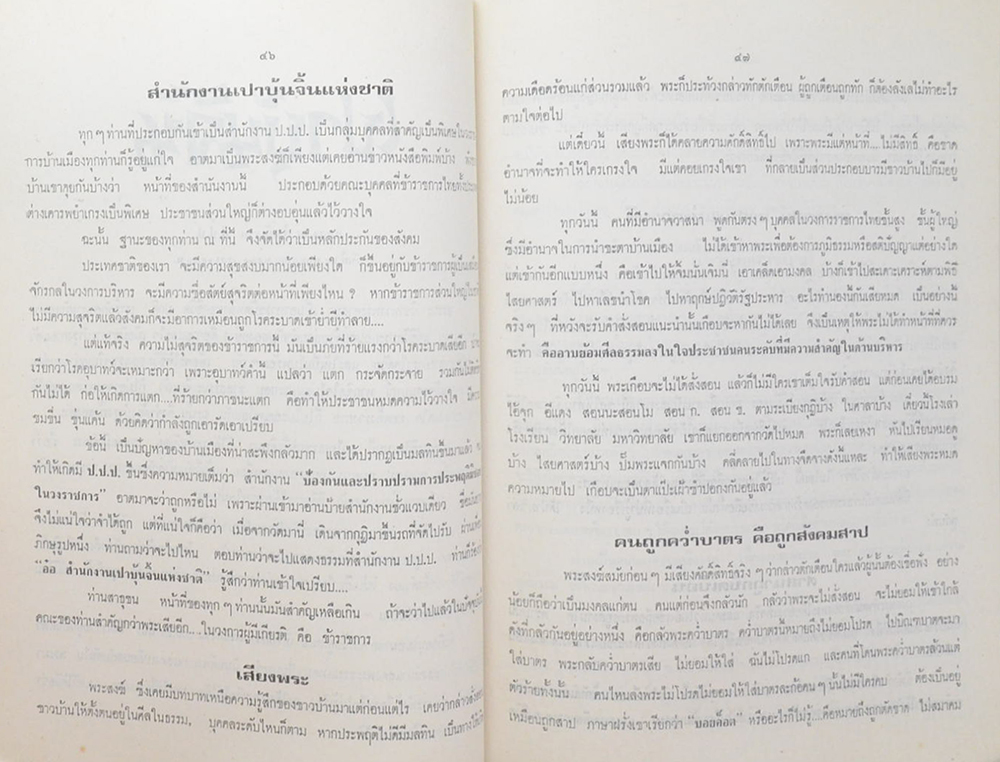 ๔๖
สำนักงานเปาบุ้นจิ้นแห่งชาติ
ทุกๆ ท่านที่ประกอบกันเข้าเป็นสำนักงาน ป.ป.ป. เป็นกลุ่มบุคคลที่สำคัญเป็นพิเศษใน
การบ้านเมืองทุกท่านก็รู้อยู่แก่ใจ อาตมาเป็นพระสงฆ์ก็เพียงแต่เคยอ่านข่าวหนังสือพิมพ์บ้าง
บ้านเขาคุยกันบ้างว่า หน้าที่ของสำนันงานนี้ ประกอบด้วยคณะบุคคลที่ข้าราชการไทย
ต่างเคารพยำเกรงเป็นพิเศษ ประชาชนส่วนใหญ่ก็ต่างอบอุ่นแล้วไว้วางใจ
ฉะนั้น ฐานะของทุกท่าน ณ ที่นี้ จึงจัดได้ว่าเป็นหลักประกันของสังคม
ประเทศชาติของเรา จะมีความสุขสงบมากน้อยเพียงใด ก็ขึ้นอยู่กับข้าราชการผู้เป็น
จักรกลในวงการบริหาร จะมีความซื่อสัตย์สุจริตต่อหน้าที่เพียงไหน ? หากข้าราชการส่วนใหญ่
ไม่มีความสุจริตแล้วสังคมก็จะมีอาการเหมือนถูกโรคระบาดเข้าย่ำยีทำลาย....
แต่แท้จริง ความไม่สุจริตของข้าราชการนี้ มันเป็นภัยที่ร้ายแรงกว่าโรคระบาดเสียอีก
เรียกว่าโรคอุบาทว์จะเหมาะกว่า เพราะอุบาทว์คำนี้ แปลว่า แตก กระจัดกระจาย รวมกัน
กันไม่ได้ ก่อให้เกิดการแตก....ที่ร้ายกว่าภาชนะแตก คือทำให้ประชาชนหมดความไว้วางใจ
ขมขื่น ขุ่นแค้น ด้วยคิดว่ากำลังถูกเอารัดเอาเปรียบ
ข้อนี้ เป็นปัญหาของบ้านเมืองที่น่าสะพึงกลัวมาก และได้ปรากฏเป็นมลทินขึ้นมาแล้ว
ทำให้เกิดมี ป.ป.ป. ขึ้นซึ่งความหมายเต็มว่า สำนักงาน "ป้องกันและปราบปรามการประพฤติ
ในวงราชการ" อาตมาจะว่าถูกหรือไม่ เพราะผ่านเข้ามาอ่านป้ายสำนักงานชั่วแวบเดียว
จึงไม่แน่ใจว่าจำได้ถูก แต่ที่แน่ใจก็คือว่า เมื่อจากวัดมานี้ เดินจากกุฏิมาขึ้นรถที่จัดไปรับ
ภิกษุรูปหนึ่ง ท่านถามว่าจะไปไหน ตอบท่านว่าจะไปแสดงธรรมที่สำนักงาน ป.ป.ป.
"อ๋อ สำนักงานเปาบุ้นจิ้นแห่งชาติ" รู้สึกว่าท่านเข้าใจเปรียบ....
ท่านสาธุชน หน้าที่ของทุกๆ ท่านนั้นมันสำคัญเหลือเกิน ถ้าจะว่าไปแล้ว
คณะของท่านสำคัญกว่าพระเสียอีก....ในวงการผู้มีเกียรติ คือ ข้าราชการ
เสียงพระ
พระสงฆ์ ซึ่งเคยมีบทบาทเหนือความรู้สึกของชาวบ้านมาแต่ก่อนแต่ไร เคยว่ากล่าว
ชาวบ้านให้ตั้งตนอยู่ในศีลในธรรม, บุคคลระดับไหนก็ตาม หากประพฤติไม่ดีมีมลทิน
๔๗
ความเดือดร้อนแก่ส่วนรวมแล้ว พระก็ประท้วงกล่าวทักตักเตือน ผู้ถูกเตือนถูกทัก ก็ต้องลังเลไม่ทำอะไร
ตามใจต่อไป
แต่เดี๋ยวนี้ เสียงพระก็ได้คลายความศักดิ์สิทธิ์ไป เพราะพระมีแต่หน้าที่....ไม่มีสิทธิ์ คือขาด
อำนาจที่จะทำให้ใครเกรงใจ มีแต่คอยเกรงใจเขา ที่กลายเป็นส่วนประกอบบารมีชาวบ้านไปก็มีอยู่
ไม่น้อย
ทุกวันนี้ คนที่มีอำนาจวาสนา พูดกันตรงๆ บุคคลในวงการราชการไทยชั้นสูง ชั้นผู้ใหญ่
ซึ่งมีอำนาจในการนำชะตาบ้านเมือง ไม่ได้เข้าหาพระเพื่อต้องการภูมิธรรมหรือสติปัญญาแต่อย่างใด
แต่เข้ากันอีกแบบหนึ่ง คือเข้าไปให้จิ้มนั่นเจิมนี่ เอาเคล็ดเอามงคล บ้างก็เข้าไปสะเดาะเคราะห์ตามพิธี
ไสยศาสตร์ ไปหาเลขนำโชค ไปหาฤกษ์ปฏิวัติรัฐประหาร อะไรทำนองนี้กันเสียหมด เป็นอย่างนี้
จริงๆ ที่หวังจะรับคำสั่งสอนแนะนำนั้นเกือบจะหากันไม่ได้เลย จึงเป็นเหตุให้พระไม่ได้ทำหน้าที่ที่ควร
จะทำ คืออาบย้อมศีลธรรมลงในใจประชาชนคนระดับที่มีความสำคัญในด้านบริหาร
ทุกวันนี้ พระเกือบจะไม่ได้สั่งสอน แล้วก็ไม่มีใครเต็มใจรับคำสอน แต่ก่อนเคยได้อบรม
ไอ้จุก อีแดง สอนนะสอนโม สอน ก. สอน ข. ตามระเบียงกุฏิบ้าง ในศาลาบ้าง เดี๋ยวนี้โรงเล่า
โรงเรียน วิทยาลัย มหาวิทยาลัย เขาก็แยกออกจากวัดไปหมด พระก็เลยเหงา หันไปเรียนหมอดู
บ้าง ไสยศาสตร์บ้าง ปั๊มพระแจกกันบ้าง คลี่คลายไปในทางจืดจางดังนี้แหละ ทำให้เสียงพระหมด
ความหมายไป เกือบจะเป็นตาแป๊ะเฝ้าซำปอกงกันอยู่แล้ว
คนถูกคว่ำบาตร คือถูกสังคมสาป
พระสงฆ์สมัยก่อนๆ มีเสียงศักดิ์สิทธิ์จริงๆ ว่ากล่าวตักเตือนใครแล้วผู้นั้นต้องเชื่อฟัง อย่าง
น้อยก็ถือว่าเป็นมงคลแก่ตน คนแต่ก่อนจึงกลัวนัก กลัวว่าพระจะไม่สั่งสอน จะไม่ยอมให้เข้าใกล้
ดังที่กลัวกันอยู่อย่างหนึ่ง คือกลัวพระคว่ำบาตร คว่ำบาตรนี้หมายถึงไม่ยอมโปรด ไปบิณฑบาตจะมา
ใส่บาตร พระกลับคว่ำบาตรเสีย ไม่ยอมให้ใส่ ฉันไม่โปรดแก และคนที่โดนพระคว่ำบาตรล้วนแต่
ตัวร้ายทั้งนั้น คนไหนลงพระไม่โปรดไม่ยอมให้ใส่บาตรละก้อคนๆ นั้นไม่มีใครคบ ต้องเป็นอยู่
เหมือนถูกสาป ภาษาฝรั่งเขาเรียกว่า "บอยค็อต" หรืออะไรก็ไม่รู้....คือหมายถึงถูกตัดขาด ไม่สมาคม